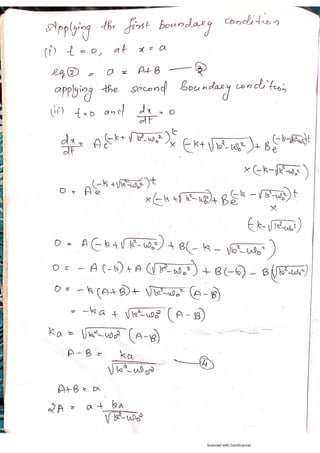 Applying the first boundary condition
(i) t = 0, at x = a
eq ② = a = A+B — ③
applying the second boundary condition
(ii) t=0 and dx/dt = 0
dx/dt = A e^(-k+√(k²-ω₀²))t × (-k+√(k²-ω₀²)) + B e^(-k-√(k²-ω₀²))t
×(-k-√(k²-ω₀²))
0 = A e^(-k+√(k²-ω₀²))t ×(-k+√(k²-ω₀²)) + B e^(-k-√(k²-ω₀²))t
×
(-k-√(k²-ω₀²))
0 = A(-k+√(k²-ω₀²)) + B(-k-√(k²-ω₀²))
0 = -A(-k)+A(√(k²-ω₀²)) + B(-k) - B(√(k²-ω₀²))
0 = -k(A+B)+ √(k²-ω₀²) (A-B)
= -ka + √(k²-ω₀²) (A-B)
ka = √(k²-ω₀²) (A-B)
A-B = ka/√(k²-ω₀²) — ④
A+B = a
2A = a + ka/√(k²-ω₀²)
Scanned with CamScanner